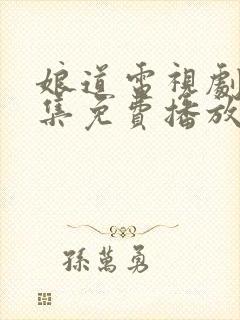 娘道電視劇
集免費播放
孫萬勇